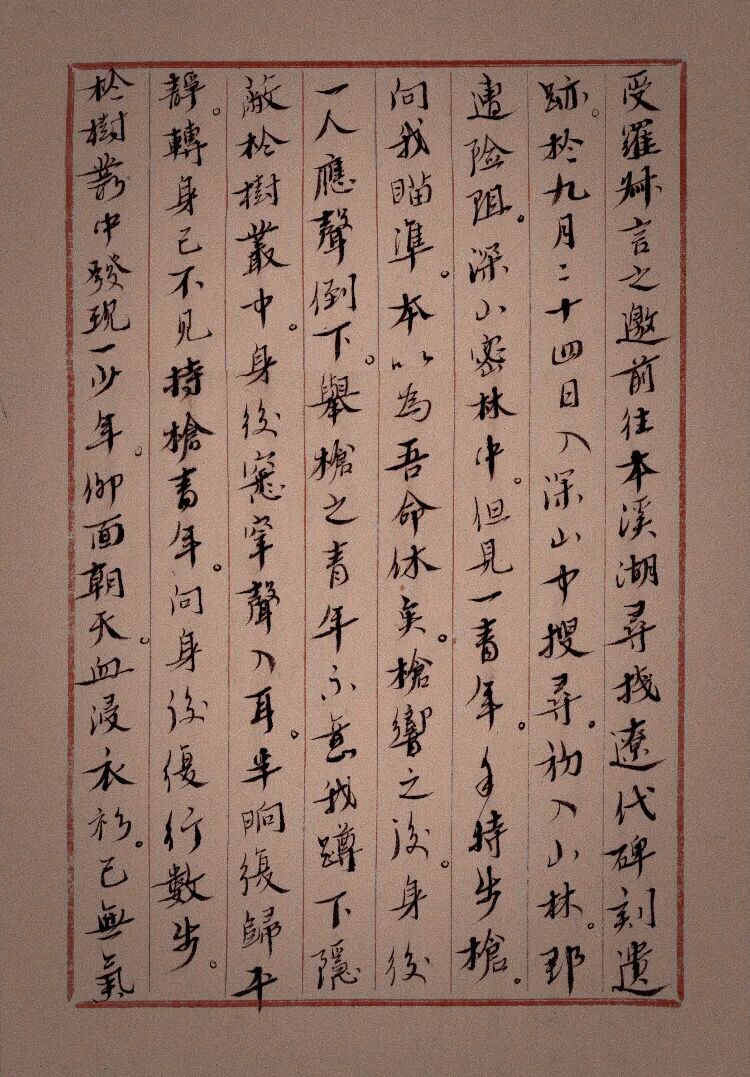 受羅叔言之邀前往本溪湖尋找遼代碑刻遺
跡。於九月二十四日入深山中搜尋。初入山林。即
遭险阻。深山密林中。但見一青年。手持步槍。
向我瞄準。本以為吾命休矣。槍響之後。身後
一人應聲倒下。舉槍之青年示意我蹲下隱
蔽於樹叢中。身後窸窣聲入耳。半晌復歸平
靜。轉身已不见持槍青年。向身後復行數步。
於樹叢中發現一少年。仰面朝天。血浸衣衫。已無氣